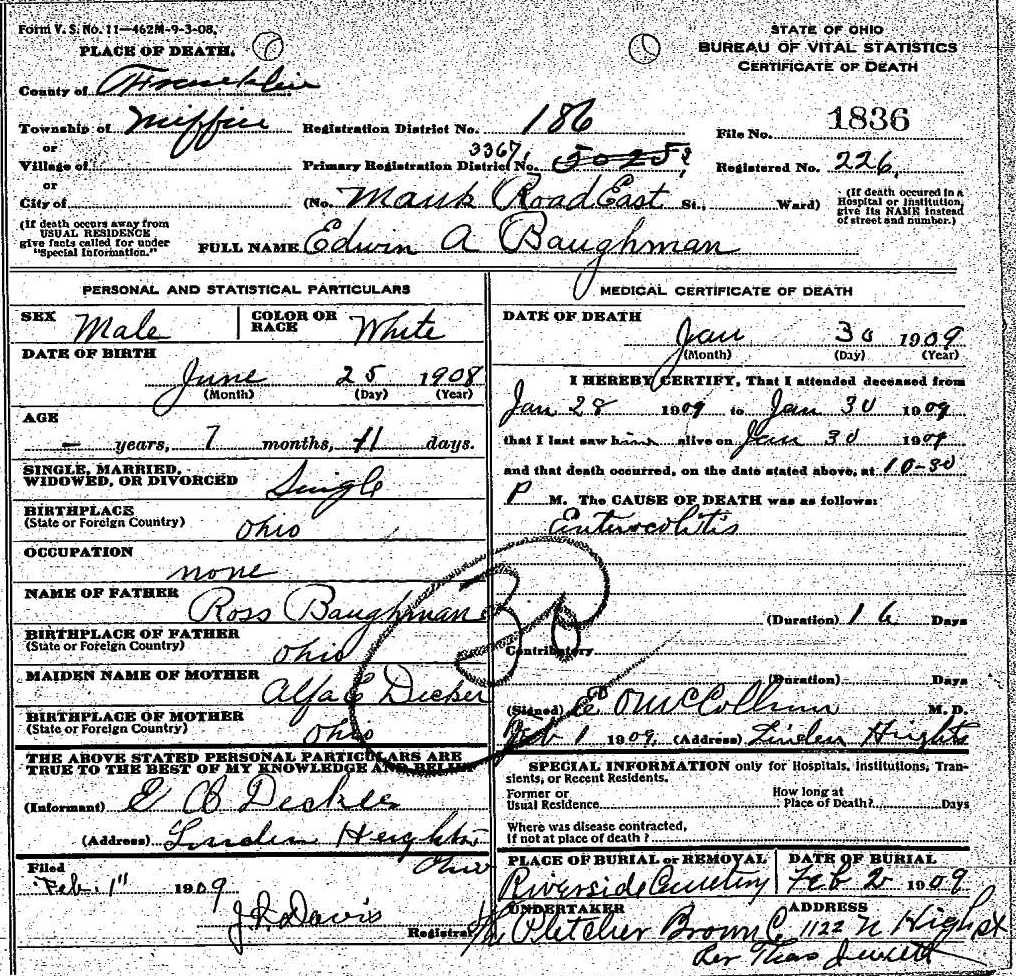 Form V. S. No. 11—462M-9-3-08.
PLACE OF DEATH.
STATE OF OHIO
BUREAU OF VITAL STATISTICS
CERTIFICATE OF DEATH
County of Franklin
Township of Mifflin
Registration District No. 186
File No. 1836
or
Village of
3367
Primary Registration District No. 5025
Registered No. 226
or
City of
(No. Mauk Road East St., Ward)
(If death occured in a Hospital or Institution, give its NAME instead of street and number.)
(If death occurs away from USUAL RESIDENCE give facts called for under "Special Information.")
FULL NAME Edwin A Baughman
PERSONAL AND STATISTICAL PARTICULARS
SEX Male
COLOR OR RACE White
DATE OF BIRTH
June 25 1908
(Month) (Day) (Year)
AGE
- years, 7 months, 11 days.
SINGLE, MARRIED, WIDOWED, OR DIVORCED Single
BIRTHPLACE
(State or Foreign Country) Ohio
OCCUPATION
none
NAME OF FATHER
Ross Baughman
BIRTHPLACE OF FATHER
(State or Foreign Country) Ohio
MAIDEN NAME OF MOTHER
Alfa C Decker
BIRTHPLACE OF MOTHER
(State or Foreign Country) Ohio
THE ABOVE STATED PERSONAL PARTICULARS ARE
TRUE TO THE BEST OF MY KNOWLEDGE AND BELIEF
(Informant) E
(Address) Linden Heights
Ohio
Filed
Feb. 1" 1909
J. L. Davis
Registrar
MEDICAL CERTIFICATE OF DEATH
DATE OF DEATH
Jan 30 1909
(Month) (Day) (Year)
I HEREBY CERTIFY, That I attended deceased from
Jan 28 1909 to Jan 30 1909
that I last saw him alive on Jan 30 1909
and that death occurred, on the date stated above, at 10-30
P M. The CAUSE OF DEATH was as follows:
Enterocolitis
(Duration) 16 Days
Contributory
(Duration) Days
(Signed) McCollum M. D.
Feb 1 1909, (Address) Linden Heights
SPECIAL INFORMATION only for Hospitals, Institutions, Tran-
sients, or Recent Residents.
Former or
Usual Residence
How long at
Place of Death? Days
Where was disease contracted,
if not at place of death?
PLACE OF BURIAL or REMOVAL
Riverside Cemetery
DATE OF BURIAL
Feb 2 1909
UNDERTAKER
Fletcher Brown C
ADDRESS
1122 N High st
Per Thos Jewett